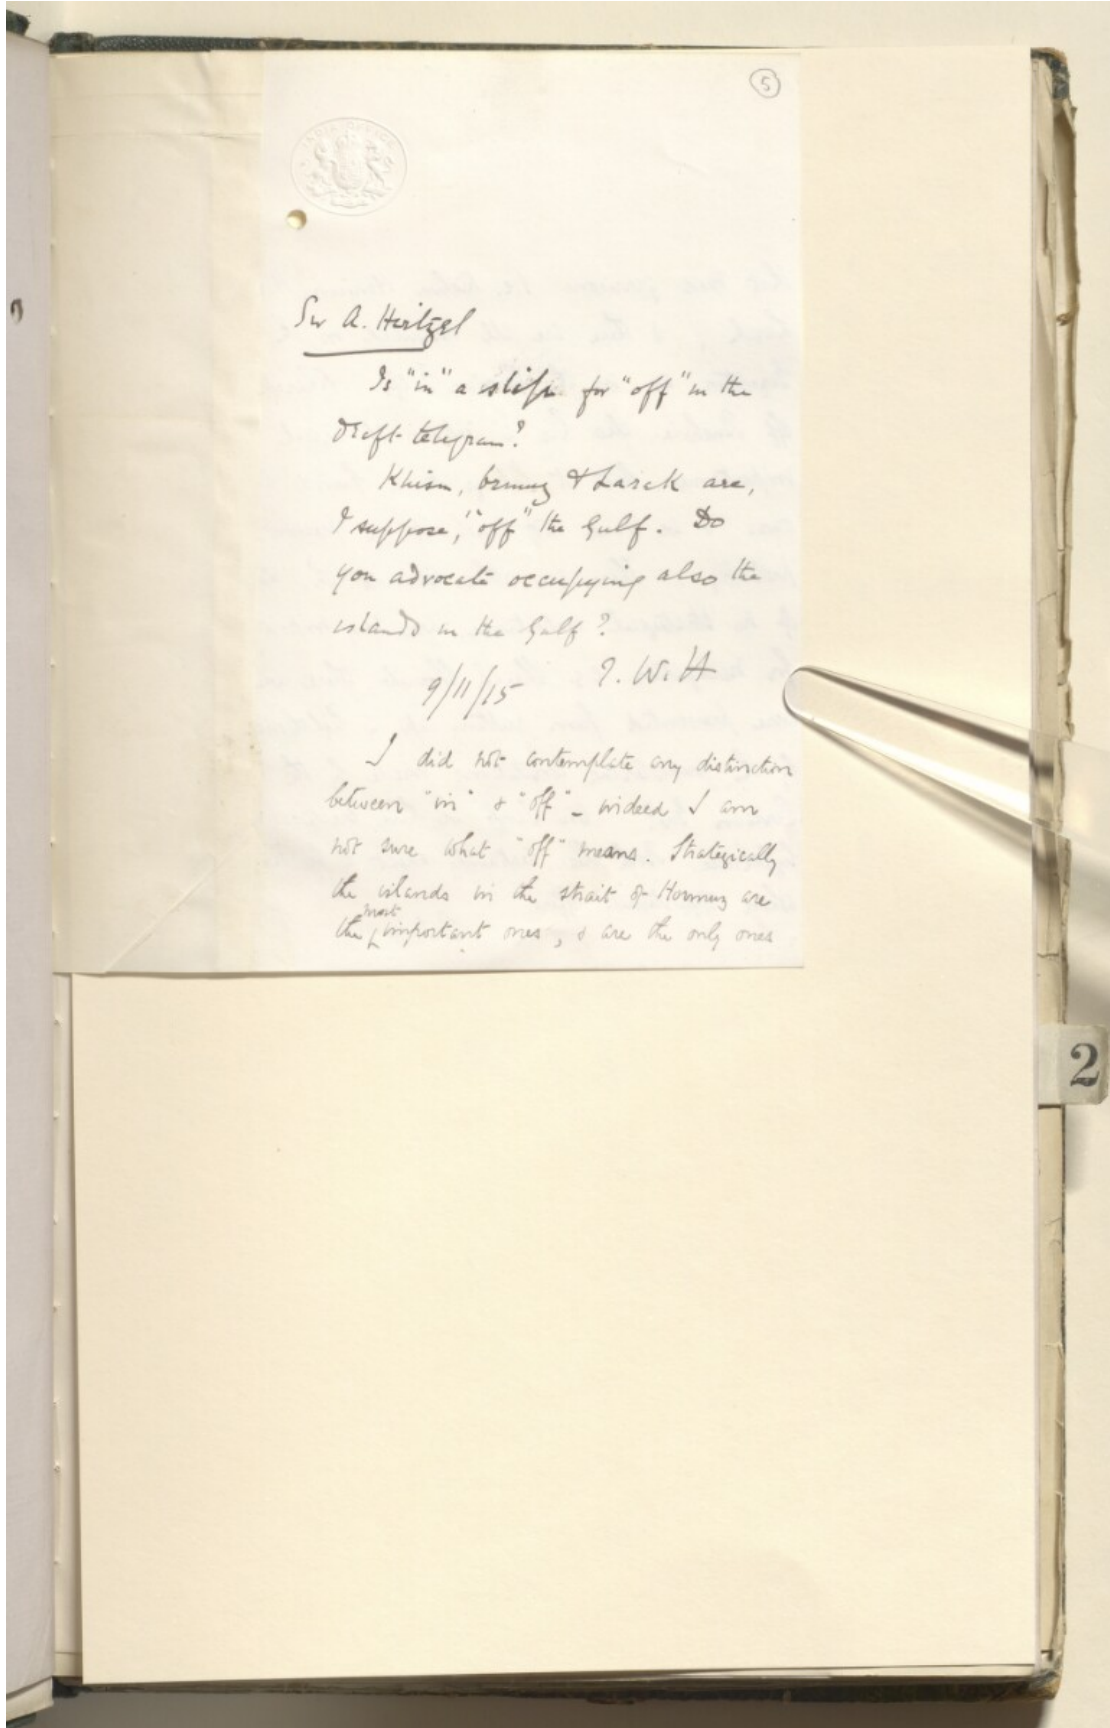 5
INDIA OFFICE
Sir A. Hirtzel
Is "in" a slip for "off" in the
draft telegram?
Khism, Ormuz & Larak are,
I suppose, "off" the Gulf. Do
you advocate occupying also the
islands in the Gulf?
9/11/15 T. W. H
I did not contemplate any distinction
between "in" & "off" – indeed I am
not sure what "off" means. Strategically
the islands in the strait of Hormuz are
the most important ones, & are the only ones
2